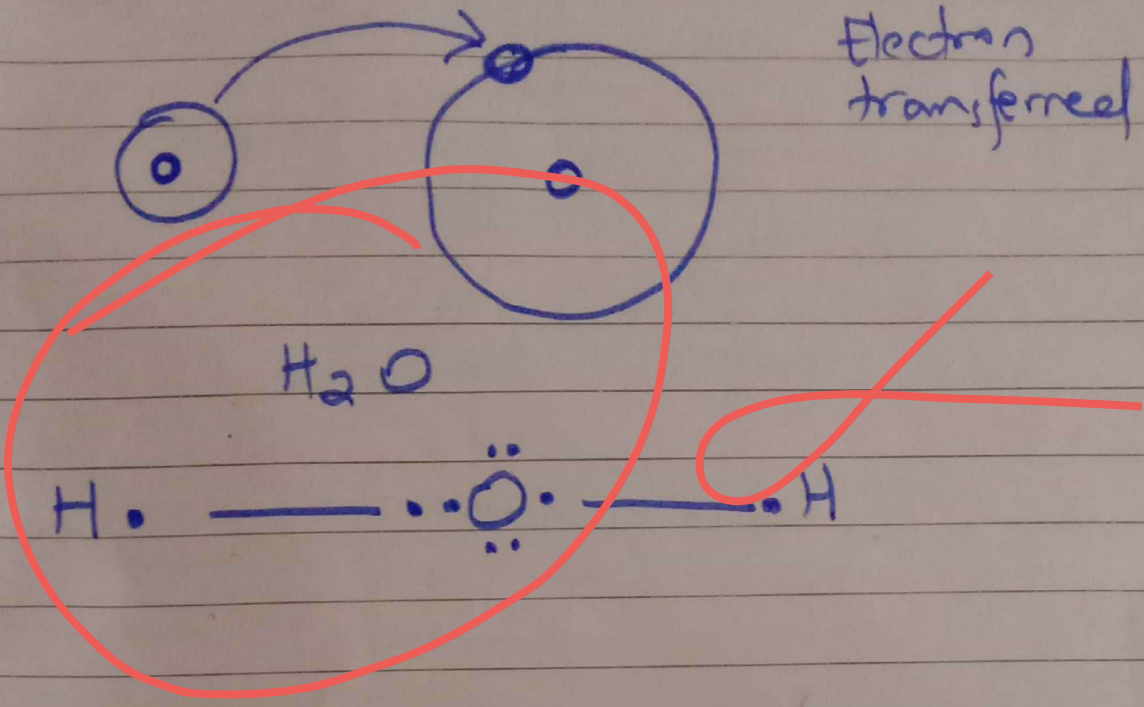 Electron
transferred
H₂O
H· — ··Ö̤· — ·H